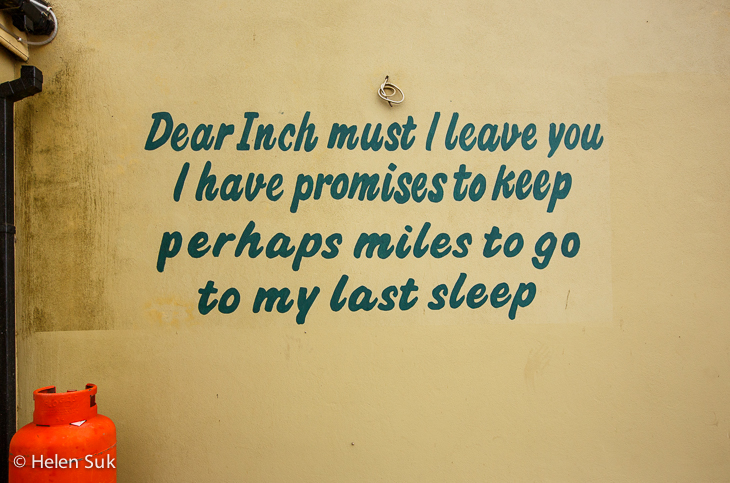 Dear Inch must I leave you
I have promises to keep
perhaps miles to go
to my last sleep
© Helen Suk